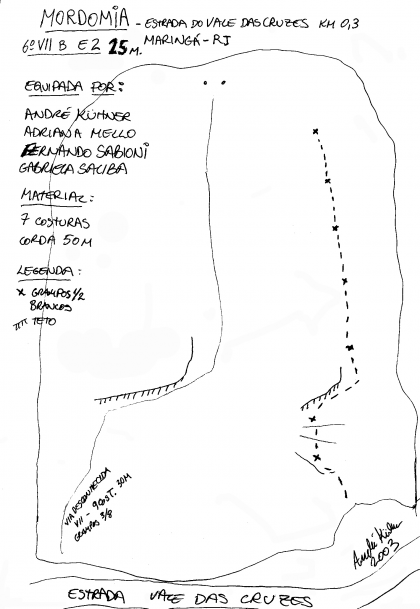 MORDOMIA - ESTRADA DO VALE DAS CRUZES KM 0,3
6º VII B E2 25 M. MARINGÁ - RJ
EQUIPADA POR:
ANDRÉ KÜHNER
ADRIANA MELLO
FERNANDO SABIONI
GABRIELA SALIBA
MATERIAL:
7 COSTURAS
CORDA 50M
LEGENDA:
x GRAMPOS 1/2
BRANCOS
TETO
VIA DESCONHECIDA
VII - 9 COST. 30M
GRAMPOS 3/8
2003
ESTRADA VALE DAS CRUZES